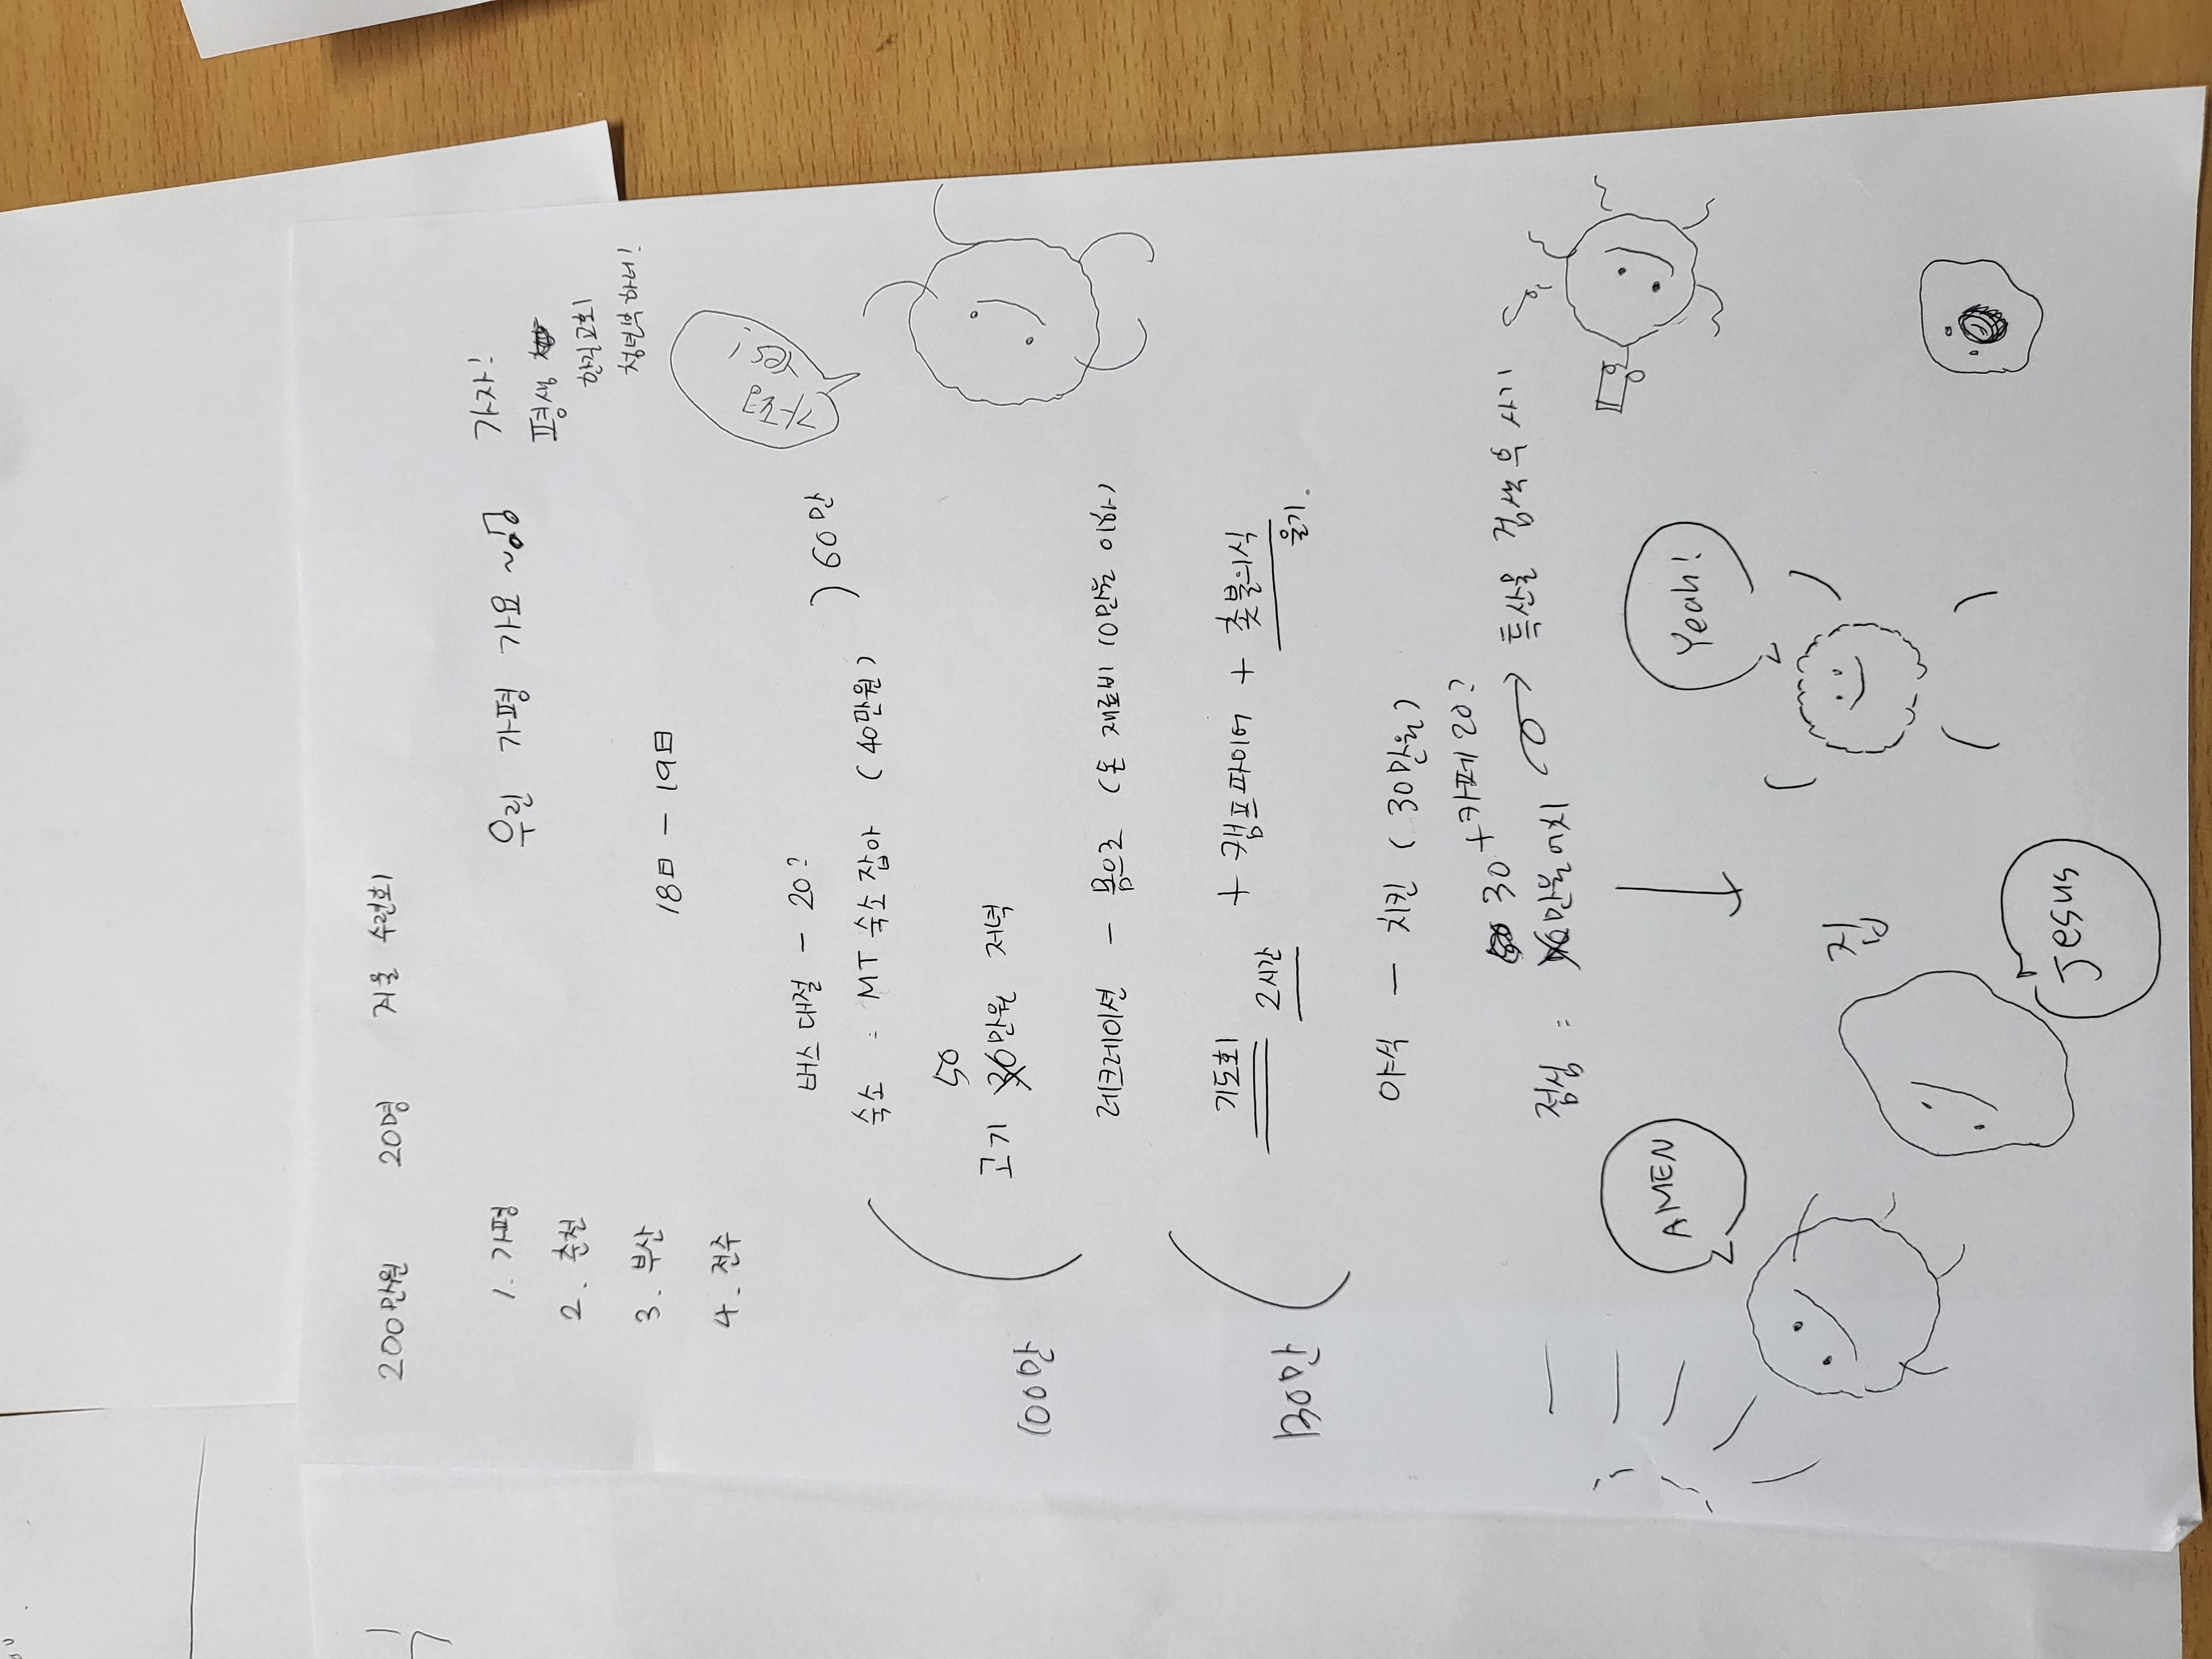 200만원 20명 겨울 수련회
1. 가평 우린 가평 가요 가자!
2. 춘천 평생
3. 부산 한길교회
4. 전주 청년부 하너!
18日 - 19日
버스 대절 - 20?
숙소 : MT 숙소 잡아 (40만원) ) 60만
50
고기 만원 저녁
100만
레크레이션 - 몸으로 (돈 재료비 10만원 이하)
기도회 2시간 + 캠프파이어 + 촛불의식
울기.
130만
야식 - 치킨 (30만원)
30 + 카페 20?
점심 : 만원어치 → 특산물 검색 후 사기
집
AMEN
Jesus
Yeah!